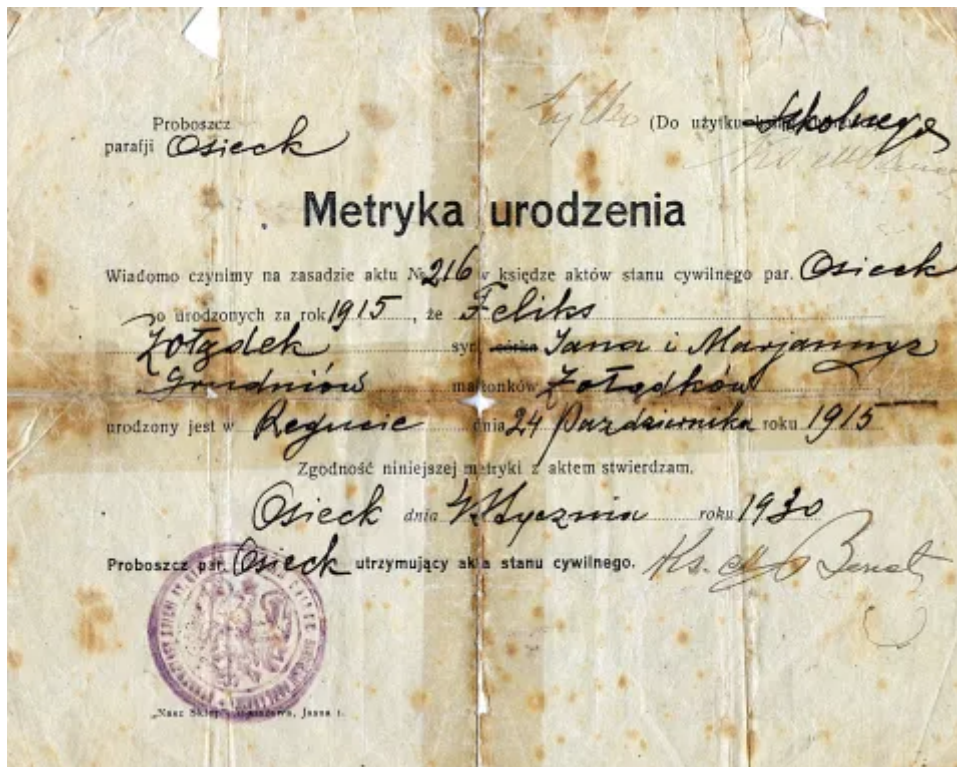 Proboszcz
parafji Osieck
tylko (Do użytku szkolnego
Metryka urodzenia
Wiadomo czynimy na zasadzie aktu № 216 w księdze aktów stanu cywilnego par. Osieck
o urodzonych za rok 1915, że Feliks
Żołądek syn, córka Jana i Marjanny z
Grudniów małżonków Żołądków
urodzony jest w Regucie dnia 24 Października roku 1915
Zgodność niniejszej metryki z aktem stwierdzam.
Osieck dnia stycznia roku 1930
Proboszcz par. Osieck utrzymujący akta stanu cywilnego. Ks.
„Nasz Sklep", Warszawa, Jasna 1.